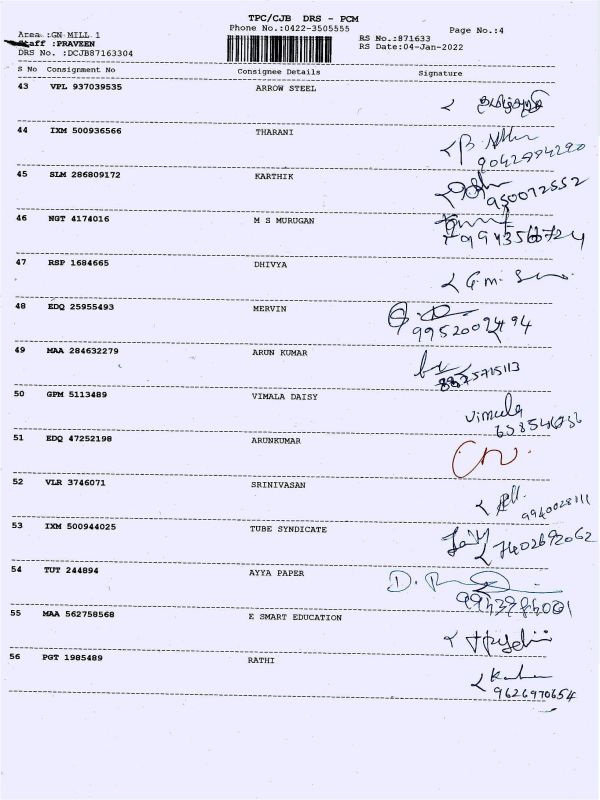 TPC/CJB DRS - PCM
Phone No.:0422-3505555
Page No.:4
Area :GN MILL 1
Staff :PRAVEEN
DRS No. :DCJB87163304
RS No.:871633
RS Date:04-Jan-2022
S No Consignment No Consignee Details Signature
43 VPL 937039535 ARROW STEEL
44 IXM 500936566 THARANI
45 SLM 286809172 KARTHIK
46 NGT 4174016 M S MURUGAN
47 RSP 1684665 DHIVYA
48 EDQ 25955493 MERVIN
49 MAA 284632279 ARUN KUMAR
50 GPM 5113489 VIMALA DAISY
Vimala
51 EDQ 47252198 ARUNKUMAR
52 VLR 3746071 SRINIVASAN
9940028111
53 IXM 500944025 TUBE SYNDICATE
7402692062
54 TUT 244894 AYYA PAPER
55 MAA 562758568 E SMART EDUCATION
56 PGT 1985489 RATHI
9626970654